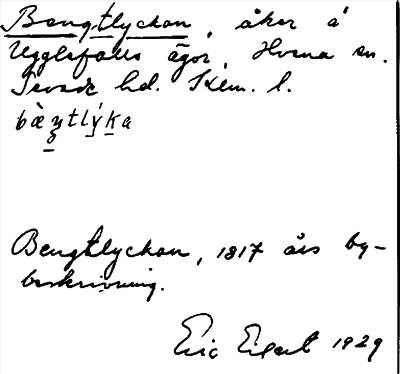 Bengtlyckan, åker å
Ugglefalls ägor, Hvena sn.
Sevede hd. Kalm. l.
bæ̀ŋtlýka
Bengtlyckan, 1817 års by-
beskrivning.
Eric Elgert 1929